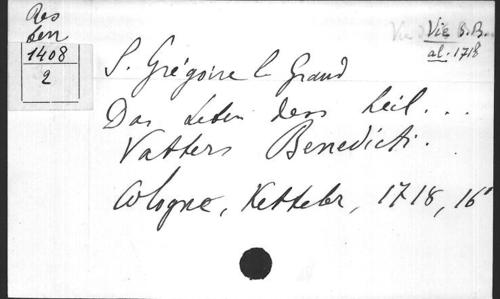 Res
Ben
1408
2
Vie S.B.
al. 1718
S. Grégoire le Grand
Das Leben dess heil...
Vatters Benedicti.
Cologne, Ketteler, 1718, 16°